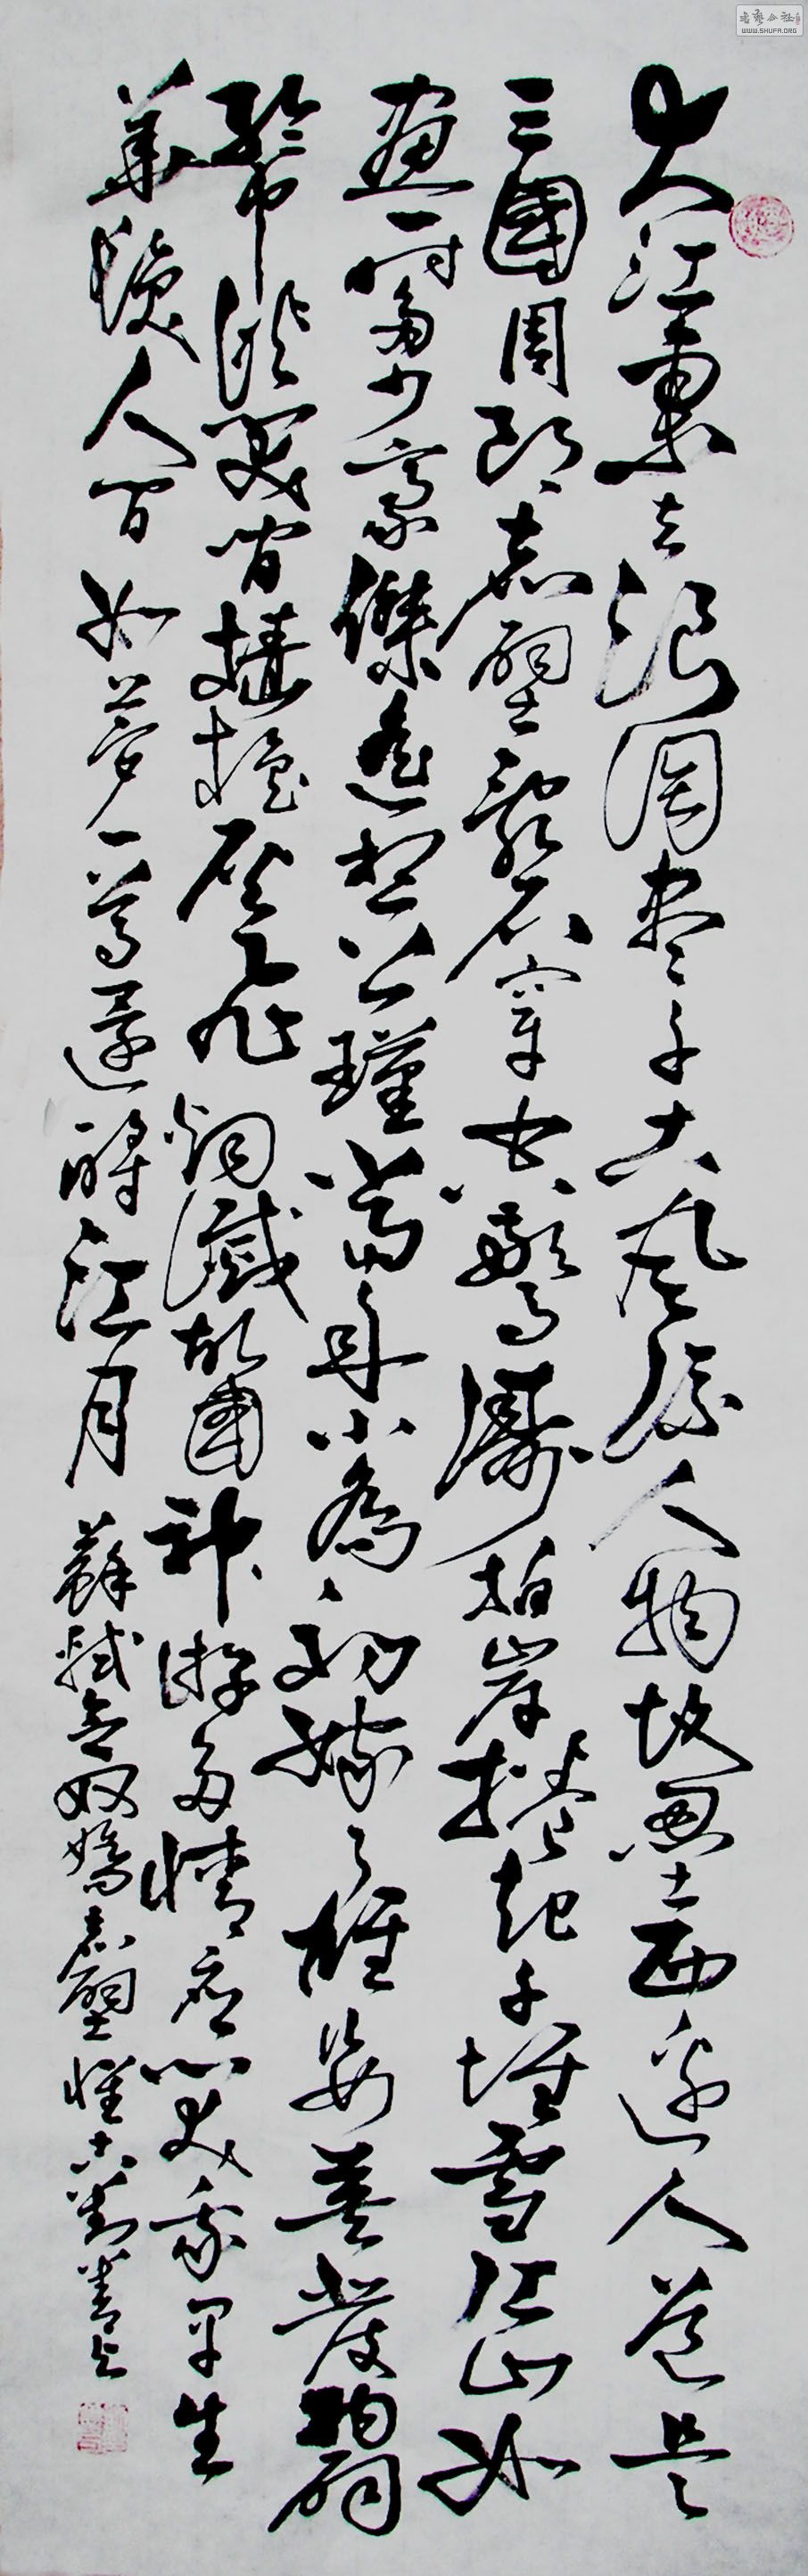 大江東去浪淘盡千古風流人物故壘西邊人道是
三國周郎赤壁亂石穿空驚濤拍岸捲起千堆雪江山如
畫一時多少豪傑遙想公瑾當年小喬初嫁了雄姿英發羽扇
綸巾談笑間檣櫓灰飛煙滅故國神游多情應笑我早生
華髮人間如夢一尊還酹江月 蘇軾念奴嬌赤壁懷古
WWW.SHUFA.ORG